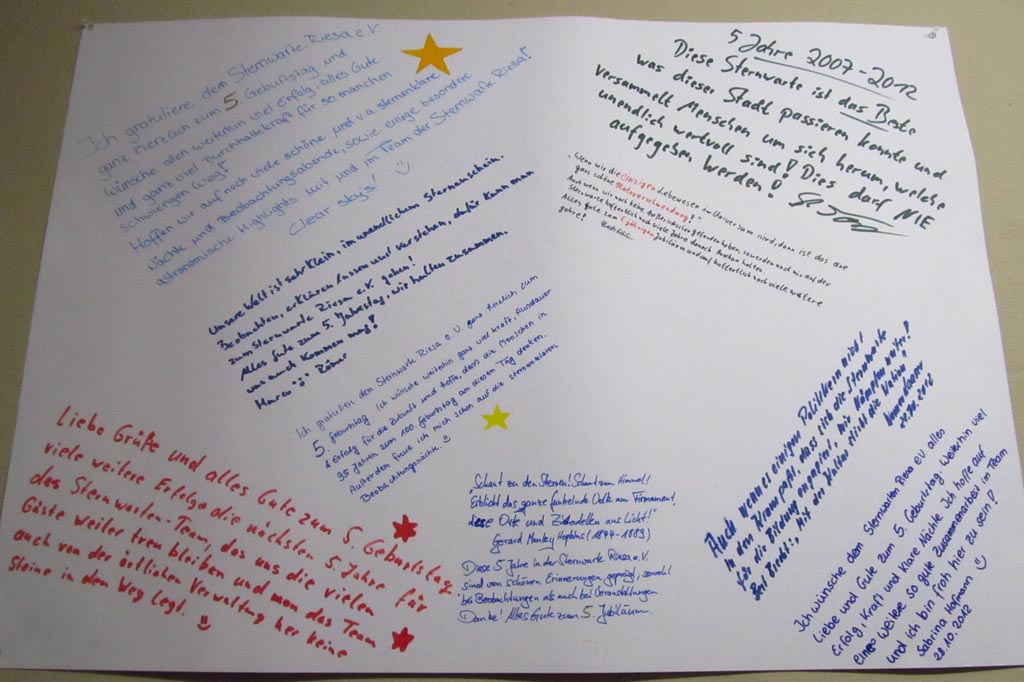 Ich gratuliere dem Sternwarte Riesa e.V.
ganz herzlich zum 5. Geburtstag und
Wünsche allen weiterhin viel Erfolg, alles Gute
und ganz viel Durchhaltekraft für so manchen
schwierigen Weg!
Hoffen wir auf noch viele schöne und v.a. sternenklare
Nächte und Beobachtungsabende, sowie einige besondere
astronomische Highlights mit und im Team der Sternwarte Riesa!
Clear sky!
5 Jahre 2007-2012
Diese Sternwarte ist das Beste
was dieser Stadt passieren konnte und
versammelt Menschen um sich herum, welche
unendlich wertvoll sind! Dies darf NIE
aufgegeben werden!
"Wenn wir die einzigen Lebewesen im Universum sind, dann ist das die
ganz schöne Platzverschwendung!"
Auch wenn wir noch keine Außerirdischen gefunden haben, so werden auch wir auf der
Sternwarte hoffentlich noch viele Jahre danach Ausschau halten.
Alles Gute zum 5 jährigen Jubiläum und auf hoffentlich noch viele weitere
Jahre!
Unsere Welt ist sehr klein, im unendlichem Sternenschein.
Beobachten, erklären lassen und verstehen, dafür kann man
zum Sternwarte Riesa e.V. gehen!
Alles Gute zum 5. Jahrestag, wir halten zusammen,
was auch kommen mag!
Marco Römer
Ich gratuliere dem Sternwarte Riesa e.V. ganz herzlich zum
5. Geburtstag. Ich wünsche weiterhin ganz viel Kraft, Ausdauer
& Erfolg für die Zukunft und hoffe, dass die Menschen in
95 Jahren zum 100. Geburtstag an diesen Tag denken.
Außerdem freue ich mich schon auf die sternenklaren
Beobachtungsnächte.
Liebe Grüße und alles Gute zum 5. Geburtstag,
viele weitere Erfolge die nächsten 5 Jahre für
das Sternwarten-Team, das uns die vielen
Gäste weiter treu bleiben und man das Team
auch von der örtlichen Verwaltung her keine
Steine in dem Weg legt.
"Schaut zu den Sternen! Schaut zum Himmel!
Erblickt das ganze funkelnde Volk am Firmament,
diese Orte und Zitadellen aus Licht!"
Gerard Manley Hopkins (1844-1889)
Diese 5 Jahre in der Sternwarte Riesa e.V.
sind von schönen Erinnerungen geprägt, sowohl
bei Beobachtungen als auch bei Veranstaltungen
Danke! Alles Gute zum 5. Jubiläum.
Auch wenn es einigen Politikern nicht
in den Kram paßt, dass sich die Sternwarte
für die Bildung engagiert, wir kämpfen weiter!
Bert Brecht: "Mit der Wahrheit stirbt die Nation"
28.10.2012
Ich wünsche dem Sternwarte Riesa e.V. alles
Liebe und Gute zum 5. Geburtstag. Weiterhin viel
Erfolg, Kraft und klare Nächte. Ich hoffe auf
eine weitere so gute Zusammenarbeit im Team
und ich bin froh hier zu sein!
Sabrina Hofmann
28.10.2012